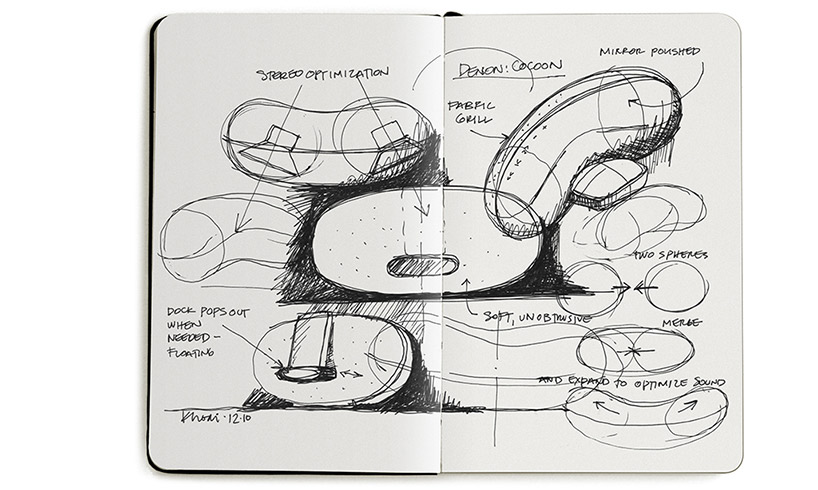 STEREO OPTIMIZATION
DENON: COCOON
MIRROR POLISHED
FABRIC
GRILL
TWO SPHERES
SOFT, UNOBTRUSIVE
MERGE
DOCK POPS OUT
WHEN
NEEDED –
FLOATING
AND EXPAND TO OPTIMIZE SOUND
12.10